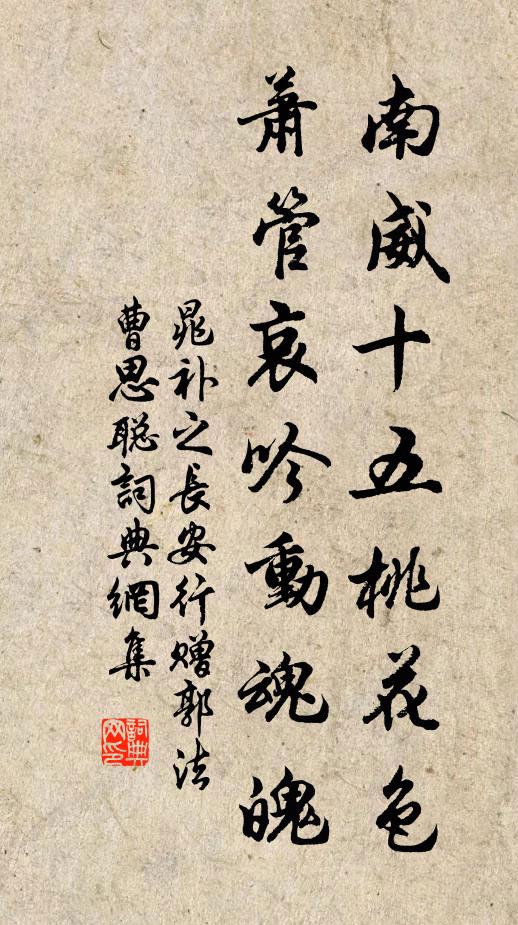 南威十五桃花色
萧管哀吟動魂魄
晁补之长安行赠郭法
曹思聪詞典網集
詞典
网印